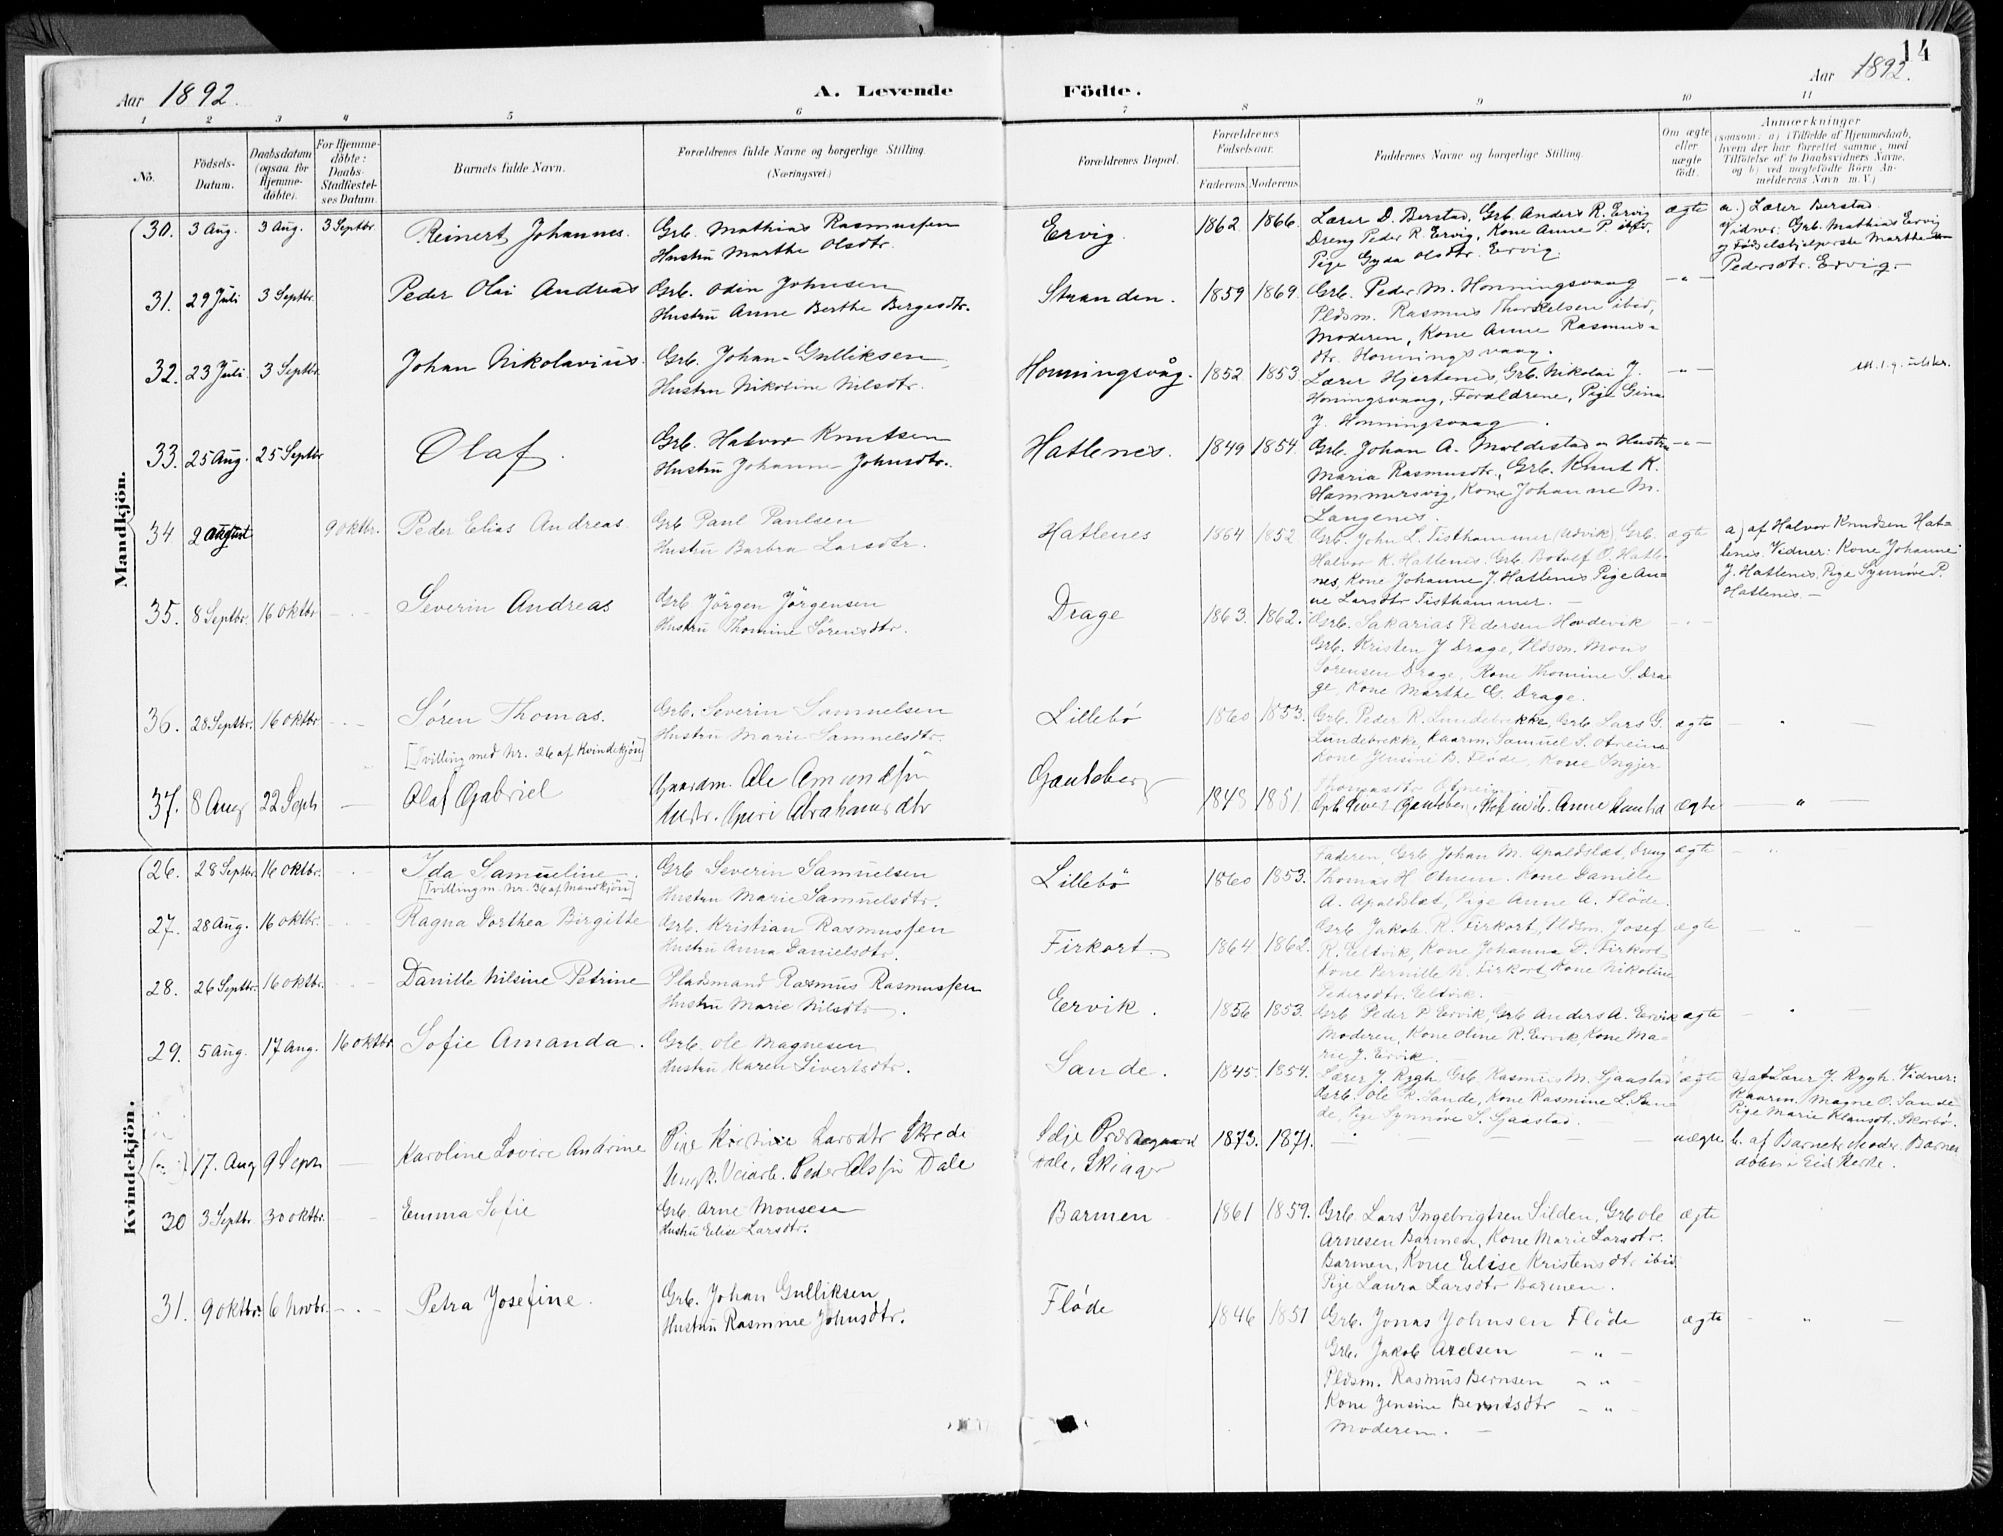 14
Aar 1892. A. Levende Födte. Aar 1892.
1 2 3 4 5 6 7 8 9 10 11
No. Födsels-Datum. Daabsdatum (ogsaa for Hjemme-döbte). For Hjemme-döbte: Daabs-Stadfæstel-ses Datum. Barnets fulde Navn. Forældrenes fulde Navne og borgerlige Stilling. (Næringsvei.) Forældrenes Bopæl. Forældrenes Födselsaar. Faderens Moderens Faddernes Navne og borgerlige Stilling. Om ægte eller uægte födt. Anmærkninger (saasom: a) i Tilfælde af Hjemmedaab, hvem der har forrettet samme, med Tilföielse af to Daabsvidners Navne, og b) ved uægtefödte Börn Anmelderens Navn m. V.)
Mandkjön.
30. 3 Aug. 3 Aug. 3 Septbr. Reinert Johannes. Grb. Mathias Rasmussen Ervig. 1862 1866. Lærer D. Berstad, Grb. Anders R. Ervig ægte a.) Lærer Berstad.
Hustru Marthe Olsdtr. Dreng Peder R. Ervig, Kone Anne P. Vidner: Grb. Mathias Ervig
Pige Gyda Olsdtr. Ervig. og Födselshjelperske Marthe
Pedersdtr. Ervig.
31. 29 Juli 3 Septbr. Peder Olai Andreas Grb. Odin Johnsen Stranden. 1859 1869. Grb. Peder M. Honningsvaag — " —
Hustru Anne Berthe Bergesdtr. Pldsm. Rasmus Thorkelsen ibid,
Moderen, Kone Anne Rasmus-
dtr. Honningsvaag.
32. 23 Juli 3 Septbr. Johan Nikolavius Grb. Johan Gulliksen Honningsvåg. 1852 1853. Lærer Hjertenes, Grb. Nikolai J. — " —
Hustru Nikoline Nilsdtr. Honingsvaag, Forældrene, Pige Gina
J. Honningsvaag.
33. 25 Aug. 25 Septbr Olaf. Grb. Halvor Knutsen Hatlenes. 1849 1854. Grb. Johan A. Moldestad og Hustru — " —
Hustru Johanne Johnsdtr. Maria Rasmusdtr., Grb. Knut K.
Hammersvig, Kone Johanne M.
Langenes.
34 2 August 9 oktbr. Peder Elias Andreas Grb Paul Paulsen Hatlenes 1864 1852 Grb. John L. Tisthammer (Udvik) Grb. ægte a) af Halvor Knudsen Hat-
Hustru Barbra Larsdtr. Halvor K. Hatlenes. Grb Botolf O. Hatle- lenes. Vidner: Kone Johanne
nes, Kone Johanne J. Hatlenes Pige An- J. Hatlenes, Pige Synnöve P.
ne Larsdtr Tisthammer. — Hatlenes. —
35. 8 Septbr. 16 oktbr. Severin Andreas Grb Jörgen Jörgensen Drage 1863. 1862. Grb. Sakarias Pedersen Hovdevik — " —
Hustru Thomine Sörensdtr. Grb. Kristen J Drage, Pldsm. Mons
Sörensen Drage, Kone Thomine S. Dra-
ge, Kone Marthe G. Drage.
36. 28 Septbr. 16 oktbr Sören Thomas. Grb. Severin Samuelsen Lillebö 1860 1853. Grb. Peder R. Lundebrekke, Grb Lars G. ægte — " —
[Tvilling med Nr. 26 af Kvindekjön] Hustru Marie Samuelsdtr. Lundebrekke, Kaarm. Samuel S. Otneim
Kone Jensine B. Flöde, Kone Ingjer
Thomasdtr Otneim.
37. 8 Aug 22 Septr — Olaf Gabriel Gaardm. Ole Amundsen Gauteberg 1848 1851. ægte — " —
Abrahamsdtr
Kvindekjön.
26. 28 Septbr. 16 oktbr. Ida Samueline. Grb Severin Samuelsen Lillebö 1860 1853. Faderen, Grb Johan M. Apaldslæt, Dreng ægte — " —
[Tvilling m. Nr. 36 af Mandkjön] Hustru Marie Samuelsdtr. Thomas H Otneim. Kone Danille
A. Apaldslæt, Pige Anne A. Flöde.
27. 28 Aug. 16 oktbr. Ragna Dorthea Birgitte Grb. Kristian Rasmussen Firkort. 1864. 1862. Grb. Jakob R. Firkort, Pldsm. Josef ægte — " —
Hustru Anna Danielsdtr. R. Eltvik, Kone Johanna D. Firkort
Kone Pernille N. Firkort, Kone Nikoline
Pedersdtr. Eltvik.
28. 26 Septbr. 16 oktbr. Danille Nilsine Petrine Pladsmand Rasmus Rasmussen Eervik. 1856 1853. Grb Peder P Ervik, Grb Anders A. Ervik ægte — " —
Hustru Marie Nilsdtr. Moderen, Kone Oline R. Ervik, Kone Ma-
rie J. Ervik.
29. 5 Aug. 17 Aug. 16 oktbr. Sofie Amanda. Grb. Ole Magnesen Sande. 1845. 1854. Lærer J. Rygh, Grb. Rasmus M. Sjaastad ægte a) af Lærer J. Rygh. Vidner:
Hustru Karen Sivertsdtr. Grb. Ole R. Sande, Kone Rasmine L. San- Kaarm. Magne O. Sande
de, Pige Synnöve S. Sjaastad. Pige Marie Klausdtr. Skorbö.
17. Aug 9 Septr — Karoline Lovise Andrine Pige Larsdtr Skrede Selje Præstegaard 1873. 1871. — uægte b. af Barnets Moder. Barnet
Ungk. Peder Olsen Dale Dale, döbt i Eid Kirke.
30 3 Septbr. 30 oktbr. Emma Sofie Grb. Arne Monsesen Barmen 1861 1859. Grb. Lars Ingebrigtsen Silden, Grb Ole ægte
Hustru Elise Larsdtr. Arnesen Barmen, Kone Marie Larsdtr.
Barmen, Kone Elise Kristensdtr ibid
Pige Laura Larsdtr Barmen.
31. 9 oktbr. 6 Novbr. — . — Petra Josefine. Grb. Johan Gulliksen Flöde 1846 1851 Grb. Jonas Johnsen Flöde ægte — " —
Hustru Rasmine Johnsdtr. Grb. Jakob Axelsen — " —
Pldsm. Rasmus Bernsen — " —
Kone Jensine Berntsdtr — " —
Moderen. —